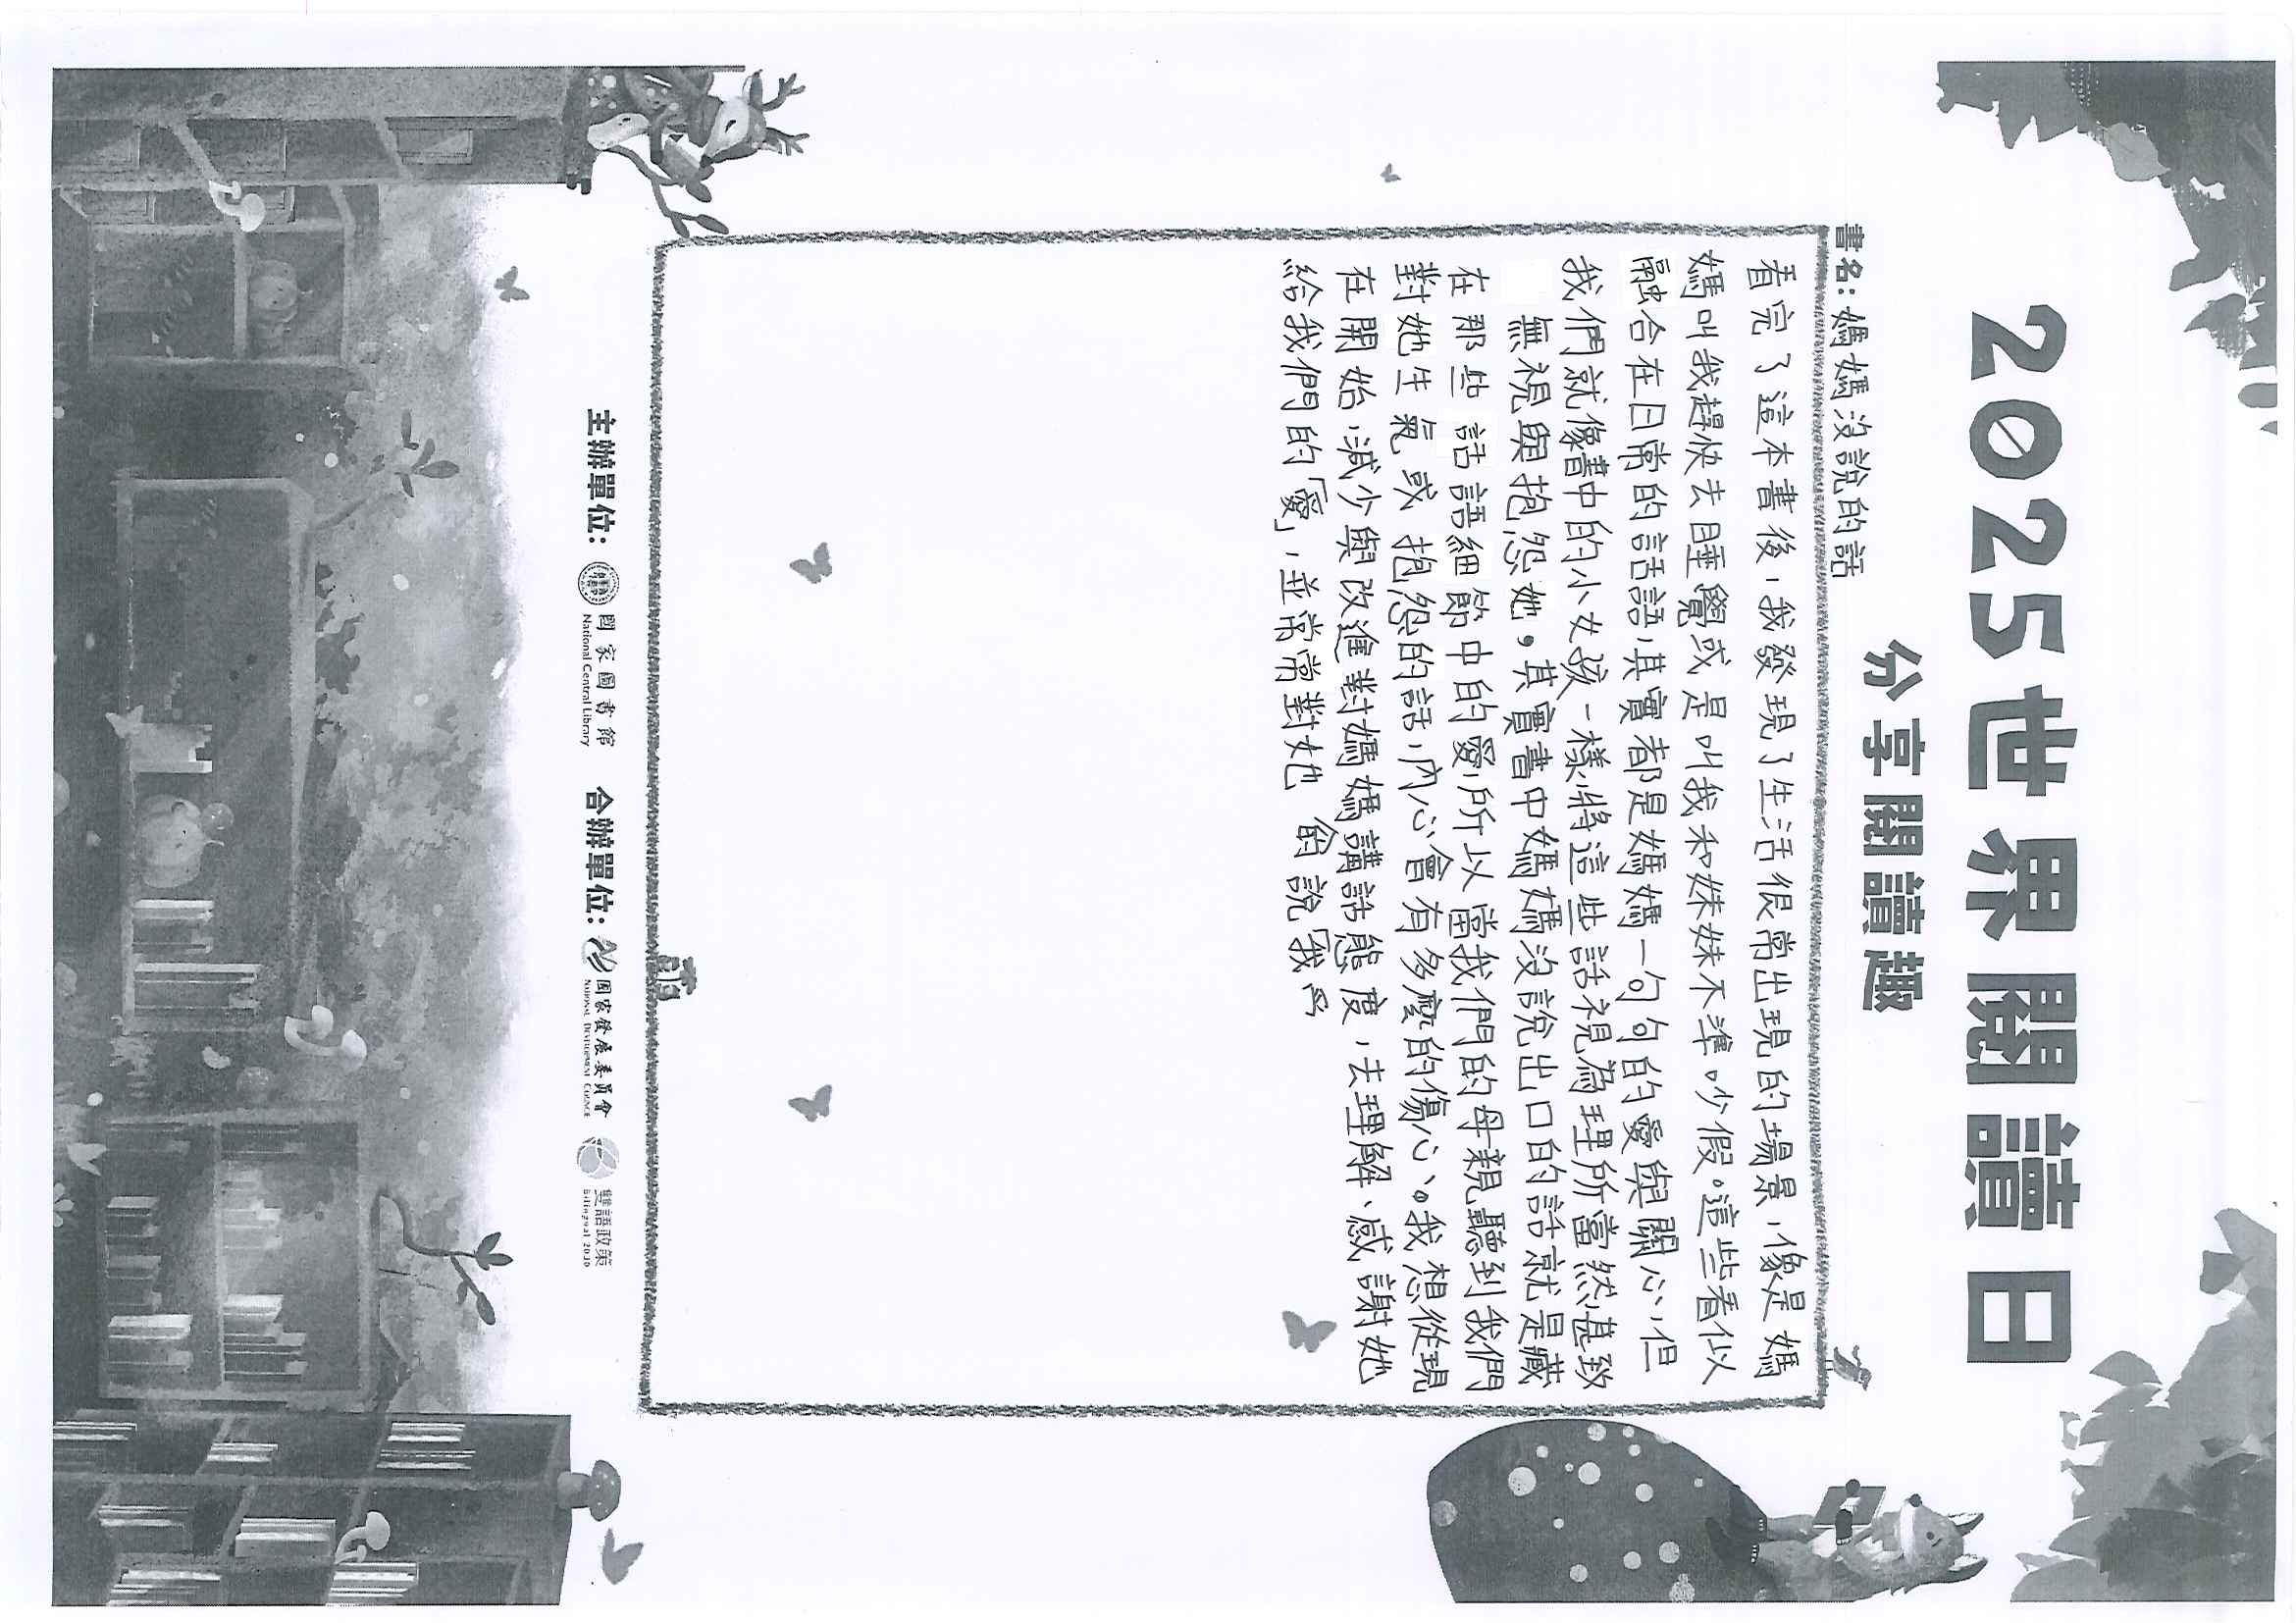 2025世界閱讀日
分享閱讀趣
書名:媽媽沒說的話
看完了這本書後,我發現了生活很常出現的場景,像是媽
媽叫我趕快去睡覺或是叫我和妹妹不準吵假。這些看似以
融合在日常的話語,其實都是媽媽一句句的愛與關心,但
我們就像書中的小女孩一樣將這些話視為理所當然甚致
無視與抱怨她,其實書中媽媽沒說出口的話就是藏
在那些話語細節中的愛,所以當我們的母親聽到我們
對她生氣或抱怨的話,內心會有多麼的傷心、。我想從現
在開始,減少與改進對媽媽講話態度,去理解、感謝她
給我們的「愛」,並常常對她 說「我
主辦單位:國家圖書館
National Central Library
合辦單位:國家發展委員會
NATIONAL DEVELOPMENT COUNCIL
雙語政策
Bilingual 2030